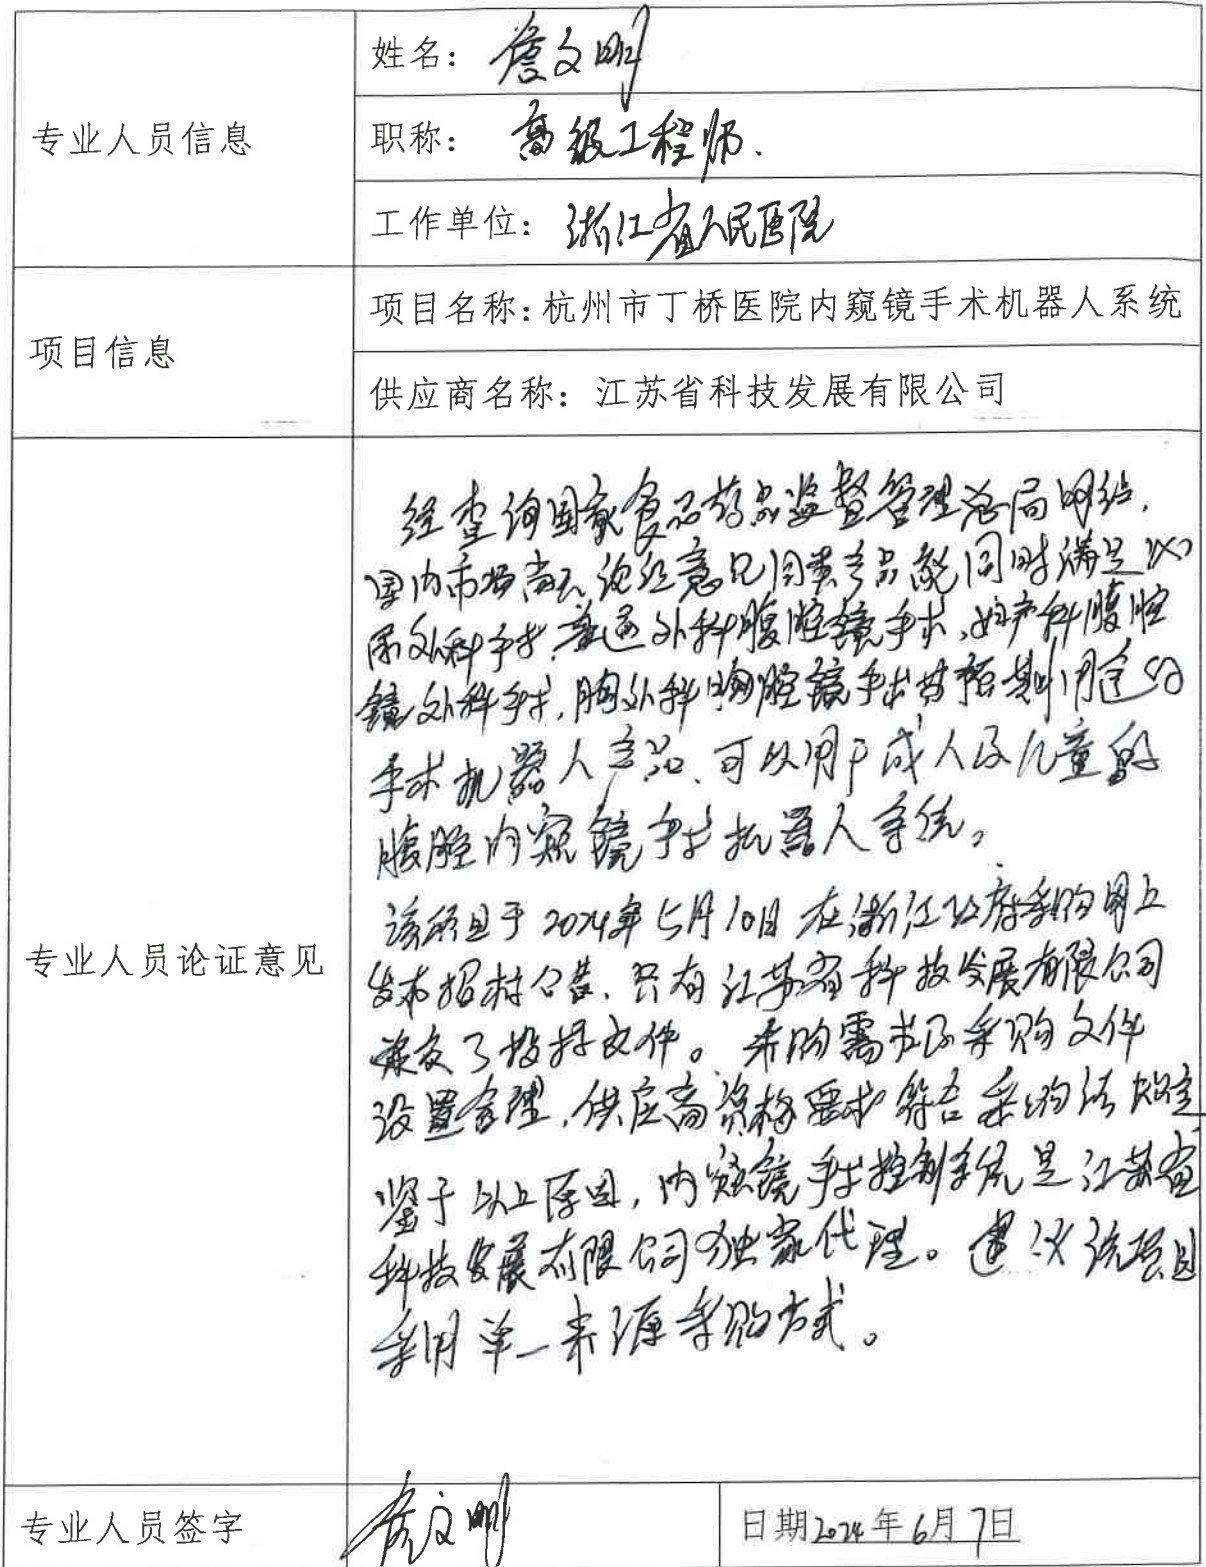 专业人员信息
姓名：詹文明
职称：高级工程师.
工作单位：浙江省人民医院
项目信息
项目名称：杭州市丁桥医院内窥镜手术机器人系统
供应商名称：江苏省科技发展有限公司
专业人员论证意见
经查询国家食品药品监督管理总局网站，
国内市场尚无 同类产品能同时满足泌
尿外科手术，普通外科腹腔镜手术，妇产科腹腔
镜外科手术，胸外科胸腔镜手术等预期用途的
手术机器人产品、可以用于成人及儿童的
腹腔内窥镜手术机器人系统。
该项目于2024年5月10日在浙江政府采购网上
发布招标公告，只有江苏省科技发展有限公司
递交了投标文件。采购需求及采购文件
设置合理，供应商资格要求符合采购法规定
鉴于以上原因，内窥镜手术控制系统是江苏省
科技发展有限公司独家代理。建议该项目
采用单一来源采购方式。
专业人员签字
詹文明
日期2024年6月7日